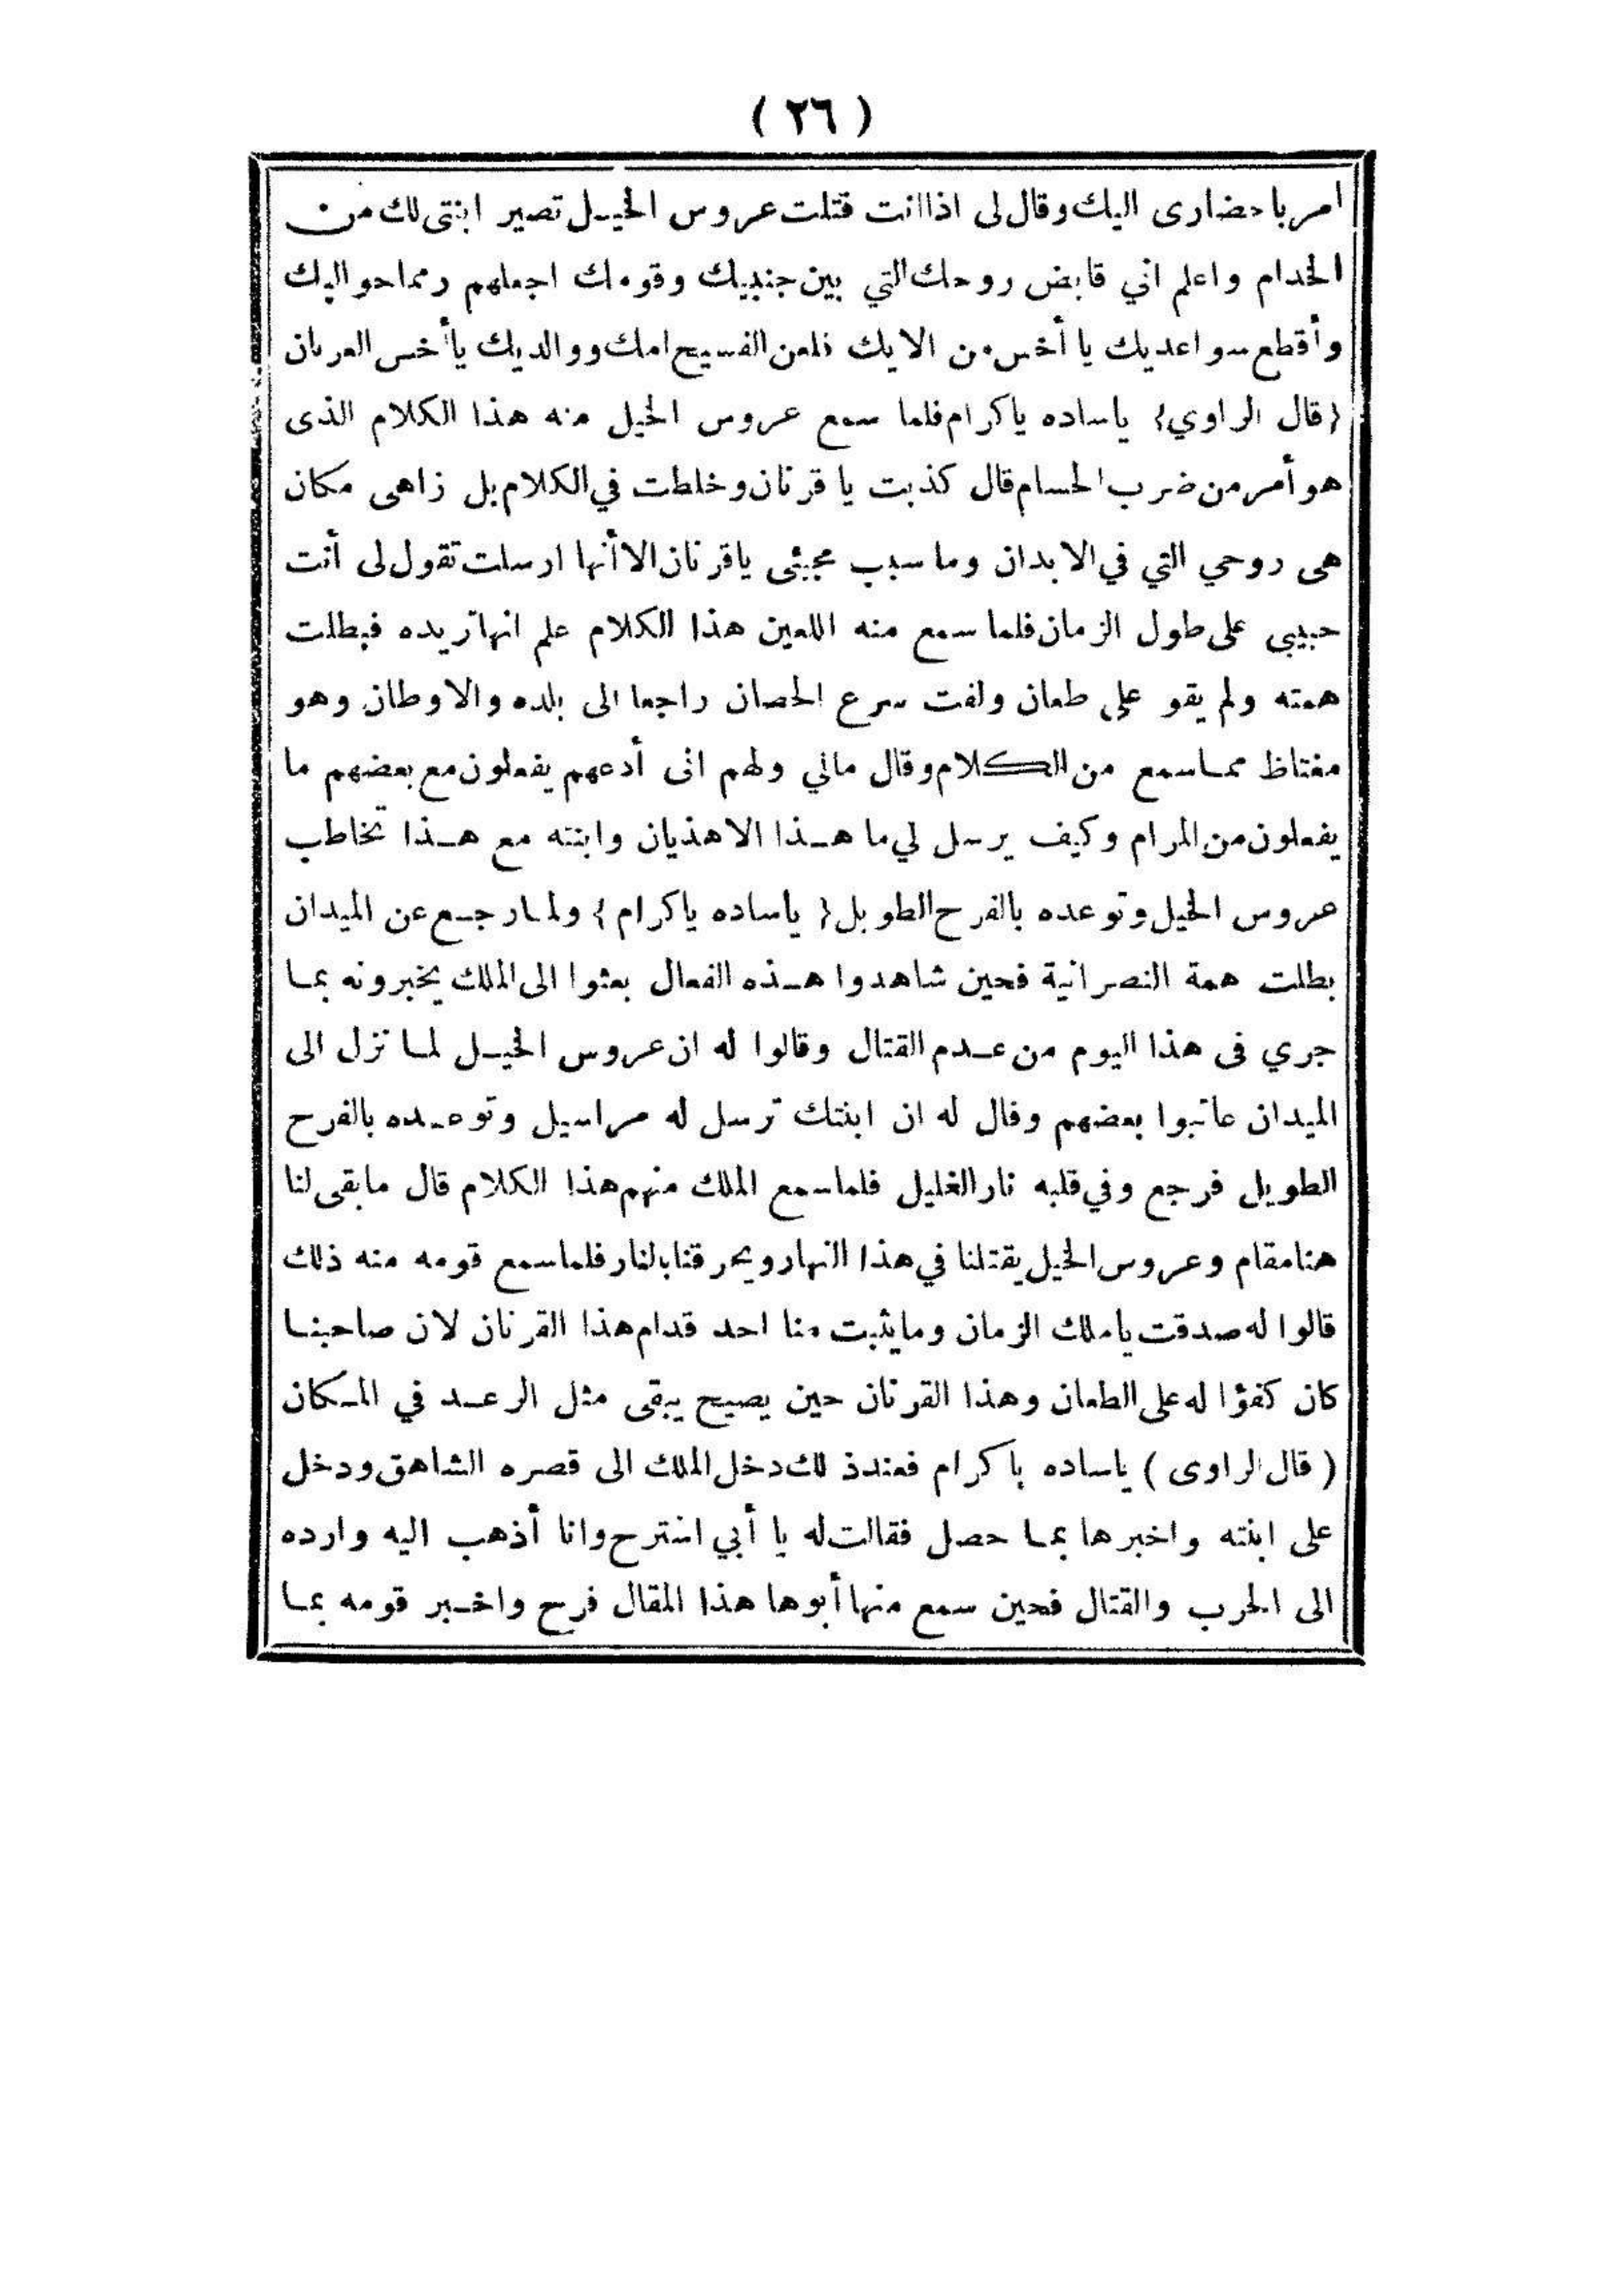 ( ٢٦ )
امر باحضارى اليك وقال لى اذا انت قتلت عروس الخيل تصير ابنتى لك من
الخدام واعلم اني قابض روحك التي بين جنبيك وقومك اجعلهم رمما حواليك
وأقطع سواعديك يا أخس من الايك فلعن الفسيح امك ووالديك يا أخس العربان
{قال الراوي} ياساده ياكرام فلما سمع عروس الخيل منه هذا الكلام الذى
هو أمر من ضرب الحسام قال كذبت يا قرنان وخلطت في الكلام بل زاهى مكان
هى روحي التي في الابدان وما سبب مجيئى ياقرنان الا أنها ارسلت تقول لى أنت
حبيبى على طول الزمان فلما سمع منه اللعين هذا الكلام علم انها تريده فبطلت
همته ولم يقو على طعان ولفت سرع الحصان راجعا الى بلده والاوطان وهو
مغتاظ مما سمع من الكلام وقال مالي ولهم انى أدعهم يفعلون مع بعضهم ما
يفعلون من المرام وكيف يرسل لي ما هذا الاهذيان وابنته مع هذا تخاطب
عروس الخيل وتوعده بالفرح الطويل { ياساده ياكرام } ولما رجع عن الميدان
بطلت همة النصرانية فحين شاهدوا هذه الفعال بعثوا الى الملك يخبرونه بما
جري فى هذا اليوم من عدم القتال وقالوا له ان عروس الخيل لما نزل الى
الميدان عاتبوا بعضهم وقال له ان ابنتك ترسل له مراسيل وتوعده بالفرح
الطويل فرجع وفي قلبه نار الغليل فلما سمع الملك منهم هذا الكلام قال مابقى لنا
هنا مقام وعروس الخيل يقتلنا في هذا النهار ويحرقنا بالنار فلما سمع قومه منه ذلك
قالوا له صدقت ياملك الزمان وما يثبت منا احد قدام هذا القرنان لان صاحبنا
كان كفؤا له على الطعان وهذا القرنان حين يصيح يبقى مثل الرعد في المكان
( قال الراوى ) ياساده ياكرام فعند ذلك دخل الملك الى قصره الشاهق ودخل
على ابنته واخبرها بما حصل فقالت له يا أبي استرح وانا أذهب اليه وارده
الى الحرب والقتال فحين سمع منها أبوها هذا المقال فرح واخبر قومه بما